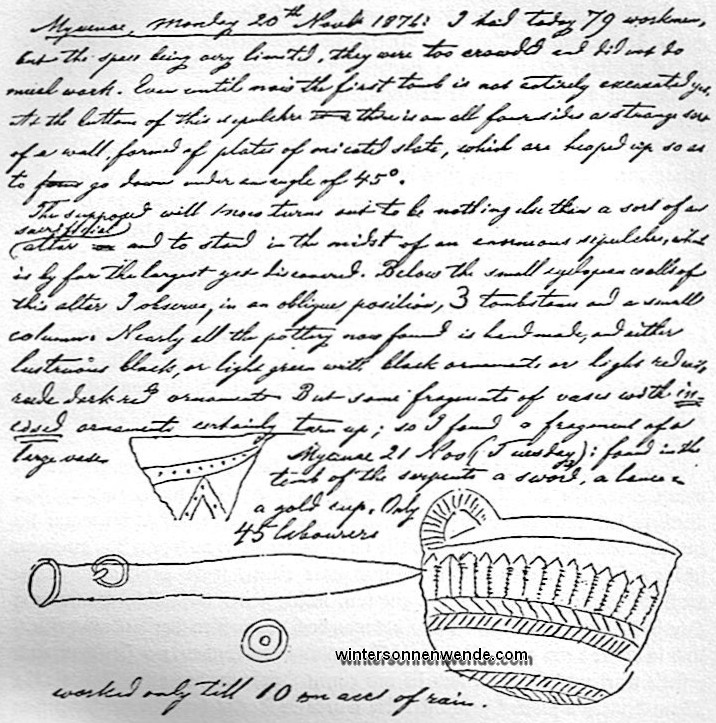 Mycenae, Monday 20th Novb 1876: I had today 79 workmen,
but the space being very limited, they were too crowded and did not do
much work. Even until now the first tomb is not entirely excavated yet.
At the bottom of this sepulchre there is on all four sides a strange sort
of a wall, formed of plates of micated slate, which are heaped up so as
to form go down under an angle of 45°.
The supposed well now turns out to be nothing else than a sort of a
sacrificial
altar and to stand in the midst of an enormous sepulchre, what
is by far the largest yet discovered. Below the small cyclopean walls of
this alter I observe, in an oblique position, 3 tombstones and a small
column. Nearly all the pottery now found is handmade, and either
lustrious black, or light green with black ornaments or light red with
rude dark red ornaments. But some fragments of vases with in=
cised ornaments certainly turn up; so I found a fragment of a
large vase
Mycenae 21 Nov (Tuesday): found in the
tomb of the serpents a sword, a lance &
a gold cup. Only
45 labourers
wintersonnenwende.com
worked only till 10 on acct of rain.